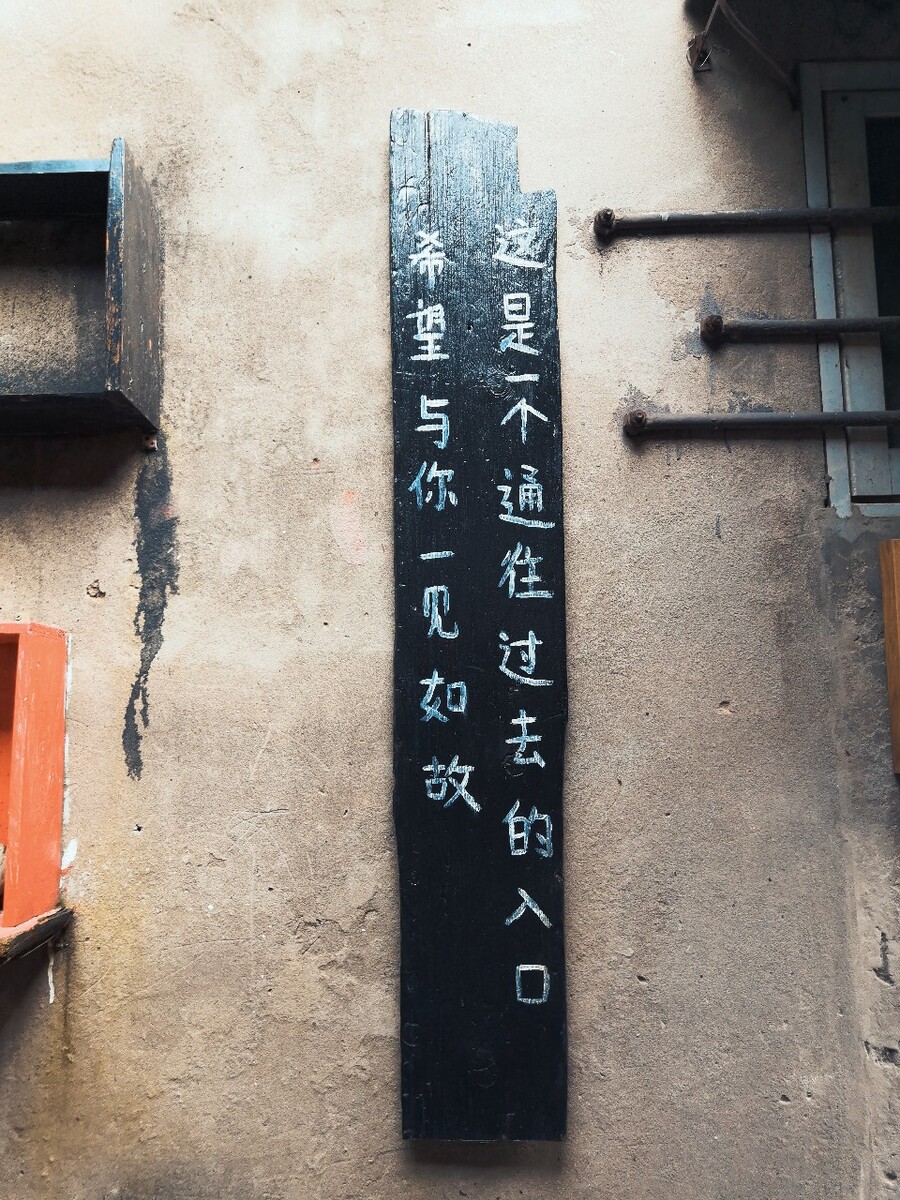 这是一个通往过去的入口
希望与你一见如故